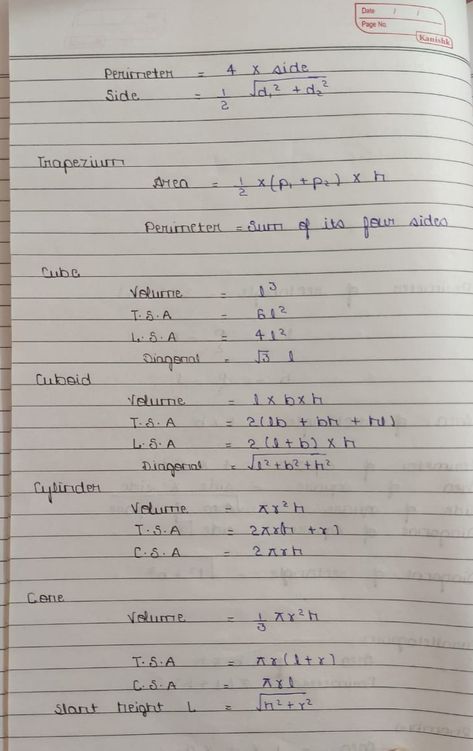 Date / /
Page No.
Kanishk
Perimeter = 4 x side
Side = 1/2 √d₁² + d₂²
Trapezium
Area = 1/2 x (p₁ + p₂) x h
Perimeter = Sum of its four sides
Cube
Volume = l³
T.S.A = 6l²
L.S.A = 4l²
Diagonal = √3 l
Cuboid
Volume = l x b x h
T.S.A = 2(lb + bh + hl)
L.S.A = 2(l + b) x h
Diagonal = √l² + b² + h²
Cylinder
Volume = πr²h
T.S.A = 2πr(h + r)
C.S.A = 2πrh
Cone
Volume = 1/3 πr²h
T.S.A = πr(l + r)
C.S.A = πrl
Slant height L = √h² + r²